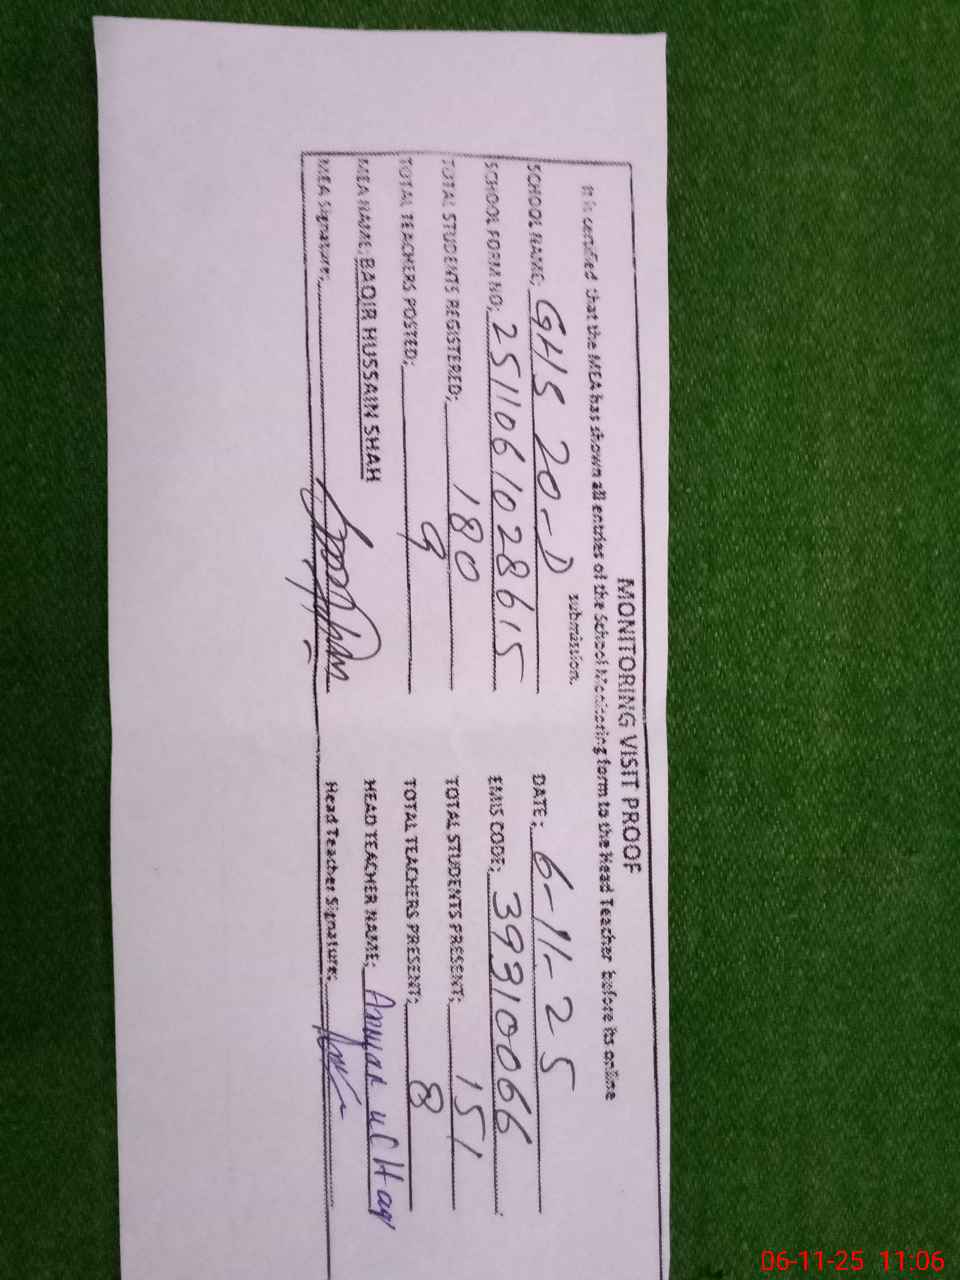 MONITORING VISIT PROOF
It is certified that the MEA has shown all entries of the School Monitoring form to the Head Teacher before its online
submission.
SCHOOL NAME; GHS 20-D DATE; 6-11-25
SCHOOL FORM NO; 2511061028615 EMIS CODE; 39310066
TOTAL STUDENTS REGISTERED; 180 TOTAL STUDENTS PRESENT; 151
TOTAL TEACHERS POSTED; 9 TOTAL TEACHERS PRESENT; 8
MEA NAME; BAQIR HUSSAIN SHAH HEAD TEACHER NAME; ul Haq
MEA Signature; Head Teacher Signature;
06-11-25 11:06